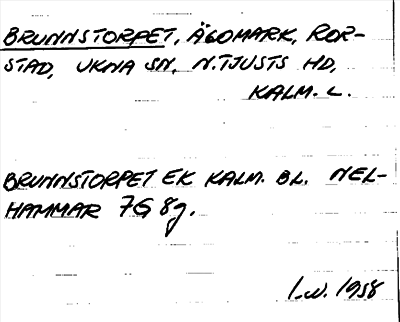 BRUNNSTORPET, ÄGOMARK, ROR-
STAD, UKNA SN, N.TJUSTS HD,
KALM. L.
BRUNNSTORPET EK KALM. BL. NEL-
HAMMAR 7G 8g.
1958